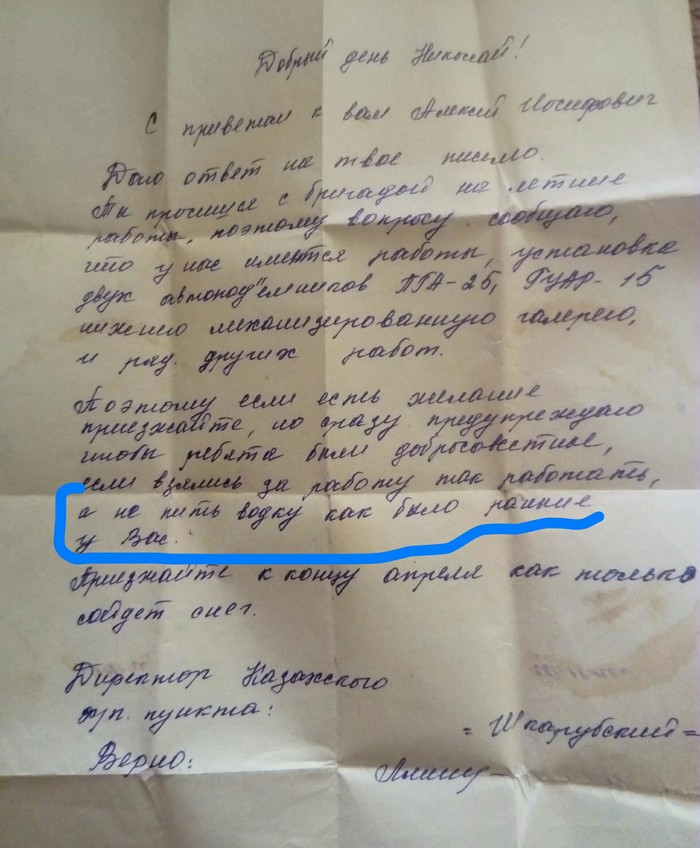 Добрый день Николай!
С приветом к вам Алексей Иосифович
Даю ответ на твое письмо.
Ты просишся с бригадой на летние
работы, поэтому вопросу сообщаю,
что у нас имеются работы, установка
двух автопод"емников ПГА-25, ГУАР-15
нижнею механизированную галерею,
и ряд других работ.
Поэтому если есть желание
приезжайте, но сразу предупреждаю
чтобы ребята были добросовестные,
если взялись за работу так работать,
а не пить водку как было раннее
у Вас.
Приезжайте к концу апреля как только
сойдет снег.
Директор Казахского
х/п. пункта:
= Шкарубский =
Верно: